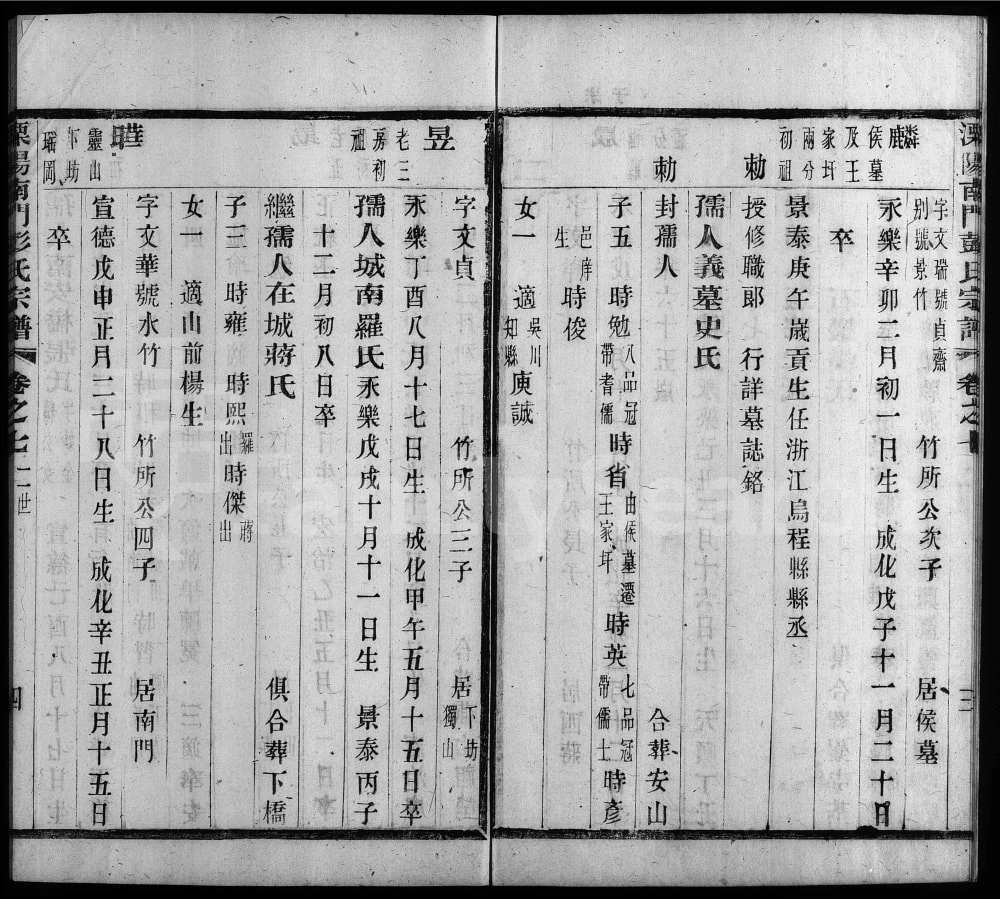 溧陽南門彭氏宗譜 卷之七
三
麟 侯墓及王家圩兩分初祖
字文瑞號貞齋別號景竹 竹所公次子 居侯墓
永樂辛卯二月初一日生 成化戊子十一月二十日
卒
景泰庚午歲貢生任浙江烏程縣縣丞
勅授修職郎 行詳墓誌銘
孺人義墓史氏
勅封孺人 合葬安山
子五 時勉八品冠帶耆儒 時省由侯墓遷王家圩 時英七品冠帶儒士 時彥
邑庠生 時俊
女一 適吳川知縣庾誠
昱 老三房初祖
字文貞 竹所公三子 居下坊獨山
永樂丁酉八月十七日生 成化甲午五月十五日卒
孺人城南羅氏永樂戊戌十月十一日生 景泰丙子
十二月初八日卒
繼孺人在城蔣氏 俱合葬下橋
子三 時雍 時熙羅出 時傑蔣出
女一 適山前楊生
曄 靈山下坊瑞岡
字文華號水竹 竹所公四子 居南門
宣德戊申正月二十八日生 成化辛丑正月十五日
卒
溧陽南門彭氏宗譜 卷之七 二世
四